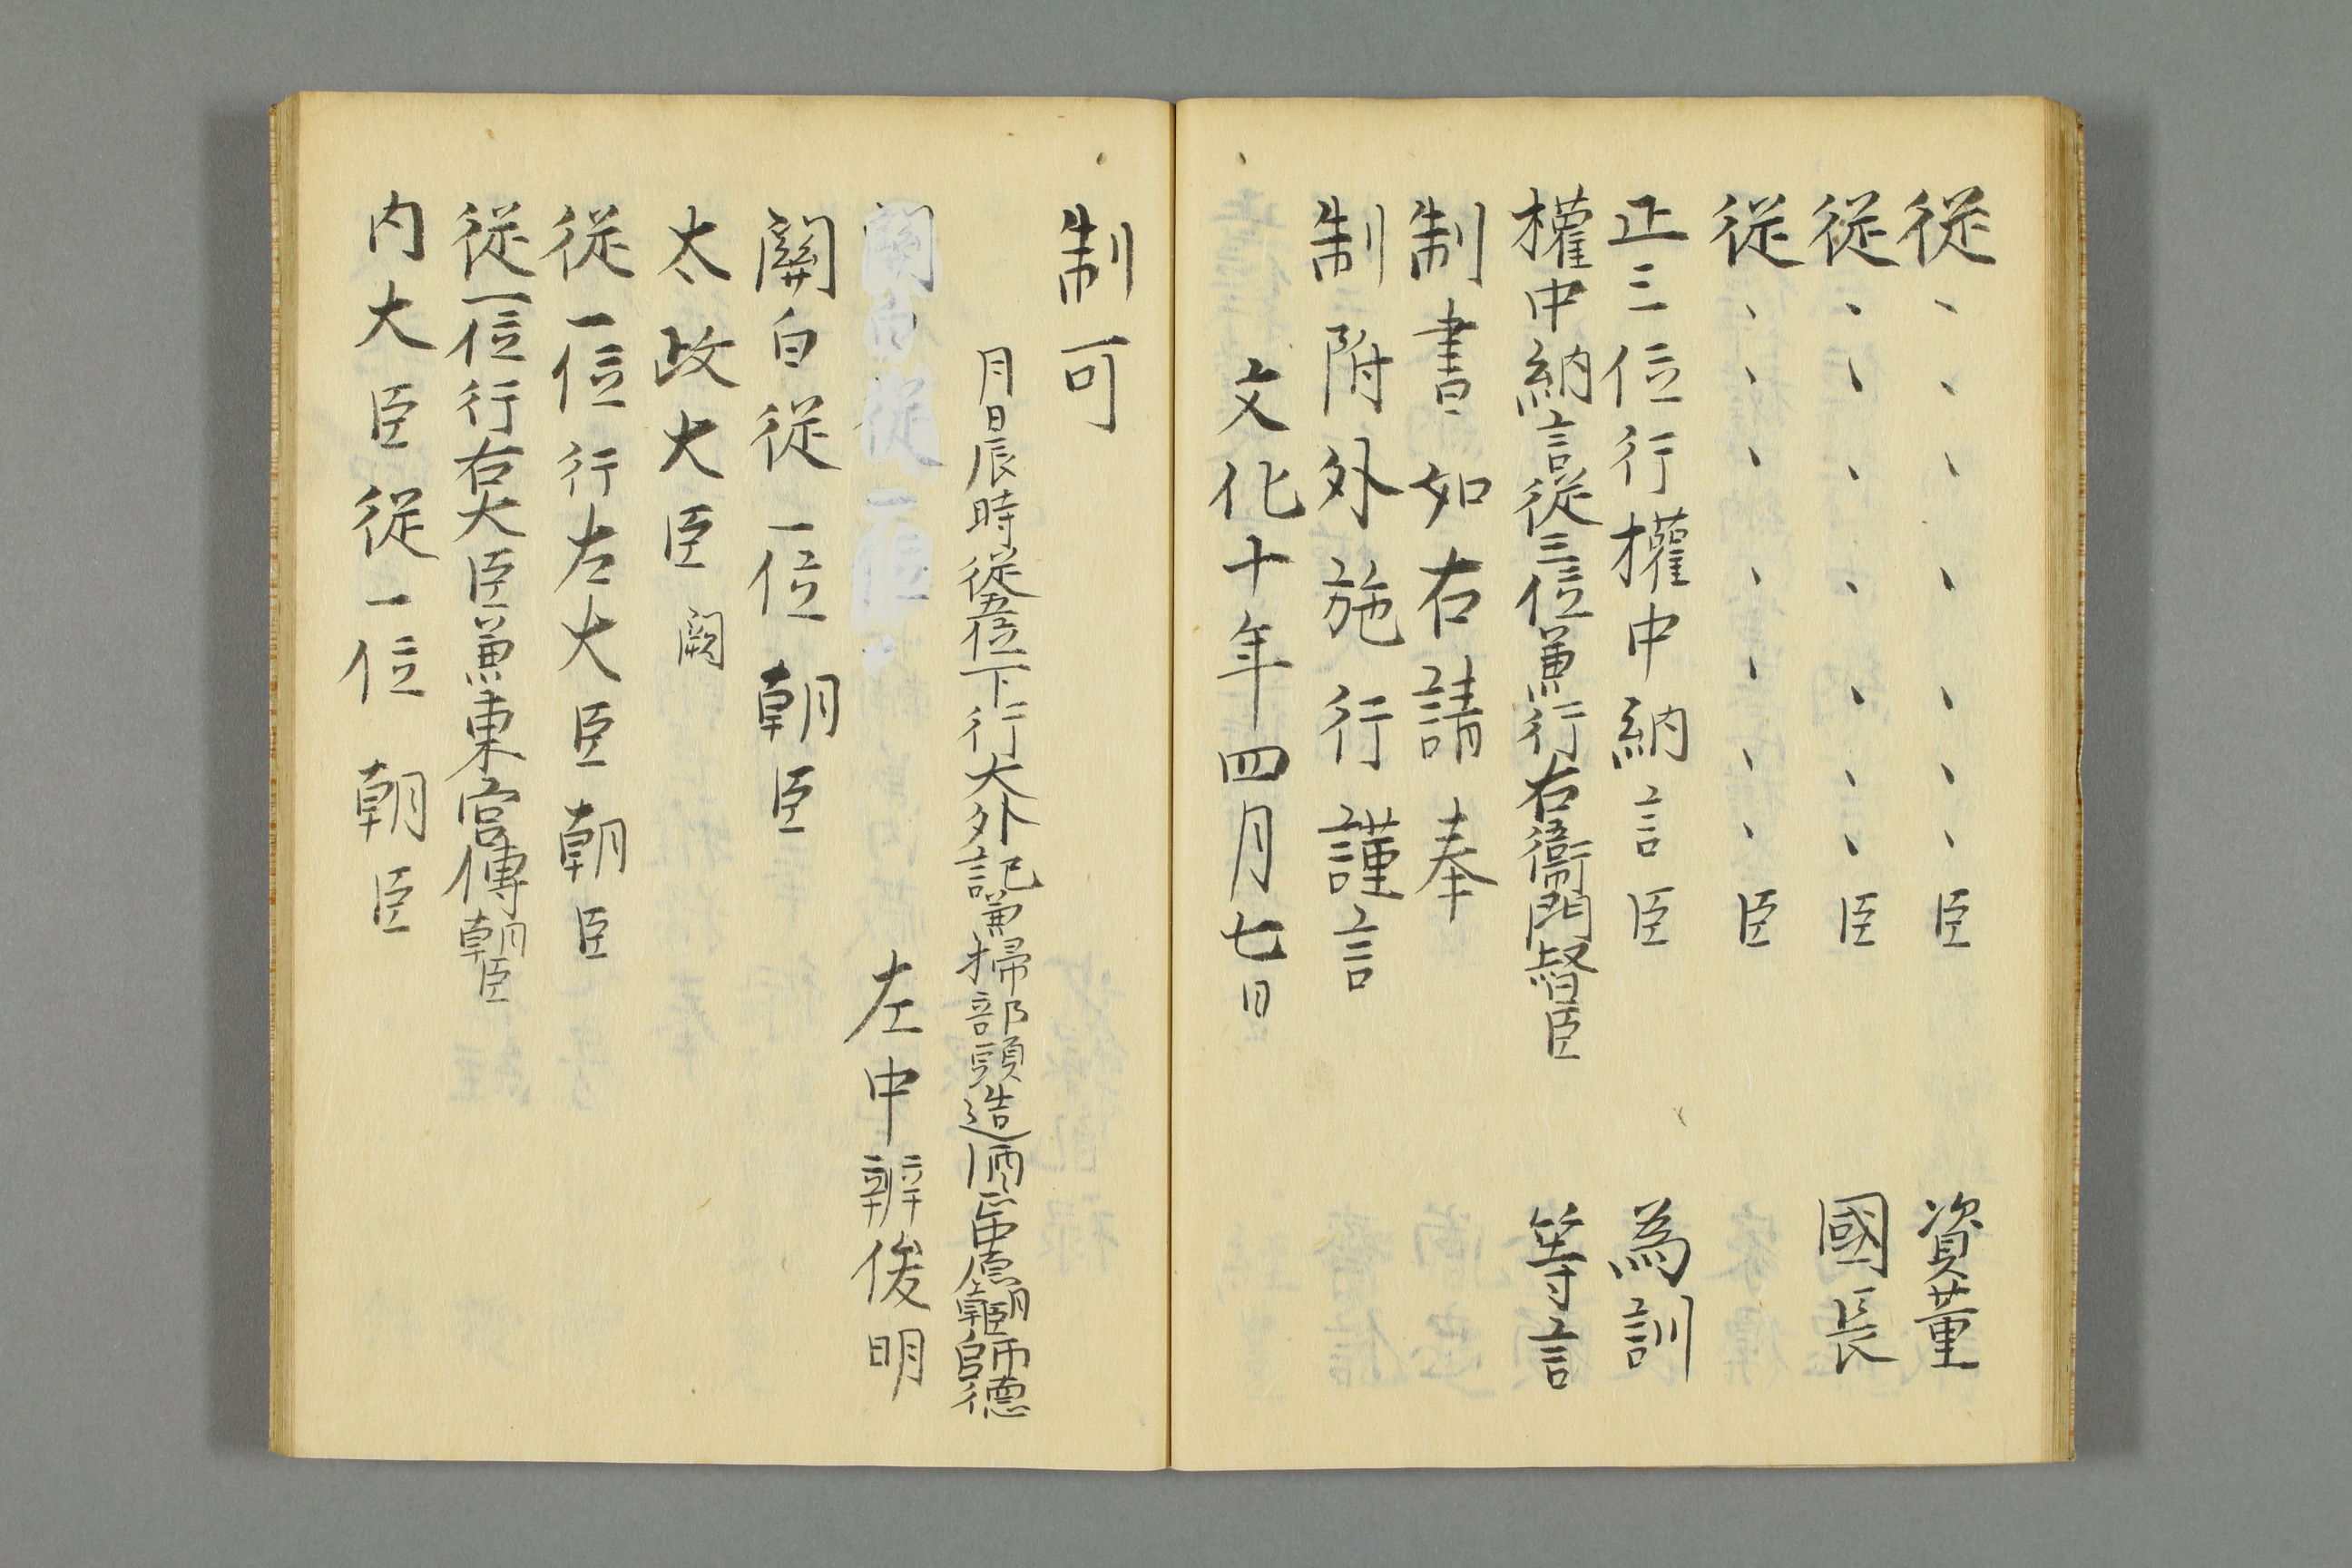 従、、、、、、臣 資董
従、、、、、、臣 國長
従、、、、、、臣
正三位行權中納言臣 為訓
權中納言従三位兼行右衞門督臣 等言
制書如右請奉
制附外施行謹言
文化十年四月七日
制可
月日辰時従五位下行大外記兼掃部頭造酒正中原朝臣師德
關白従一位
左中辨俊明
關白従一位 朝臣
太政大臣 闕
従一位行左大臣朝臣
従一位行右大臣兼東宮傅朝臣
内大臣従一位 朝臣